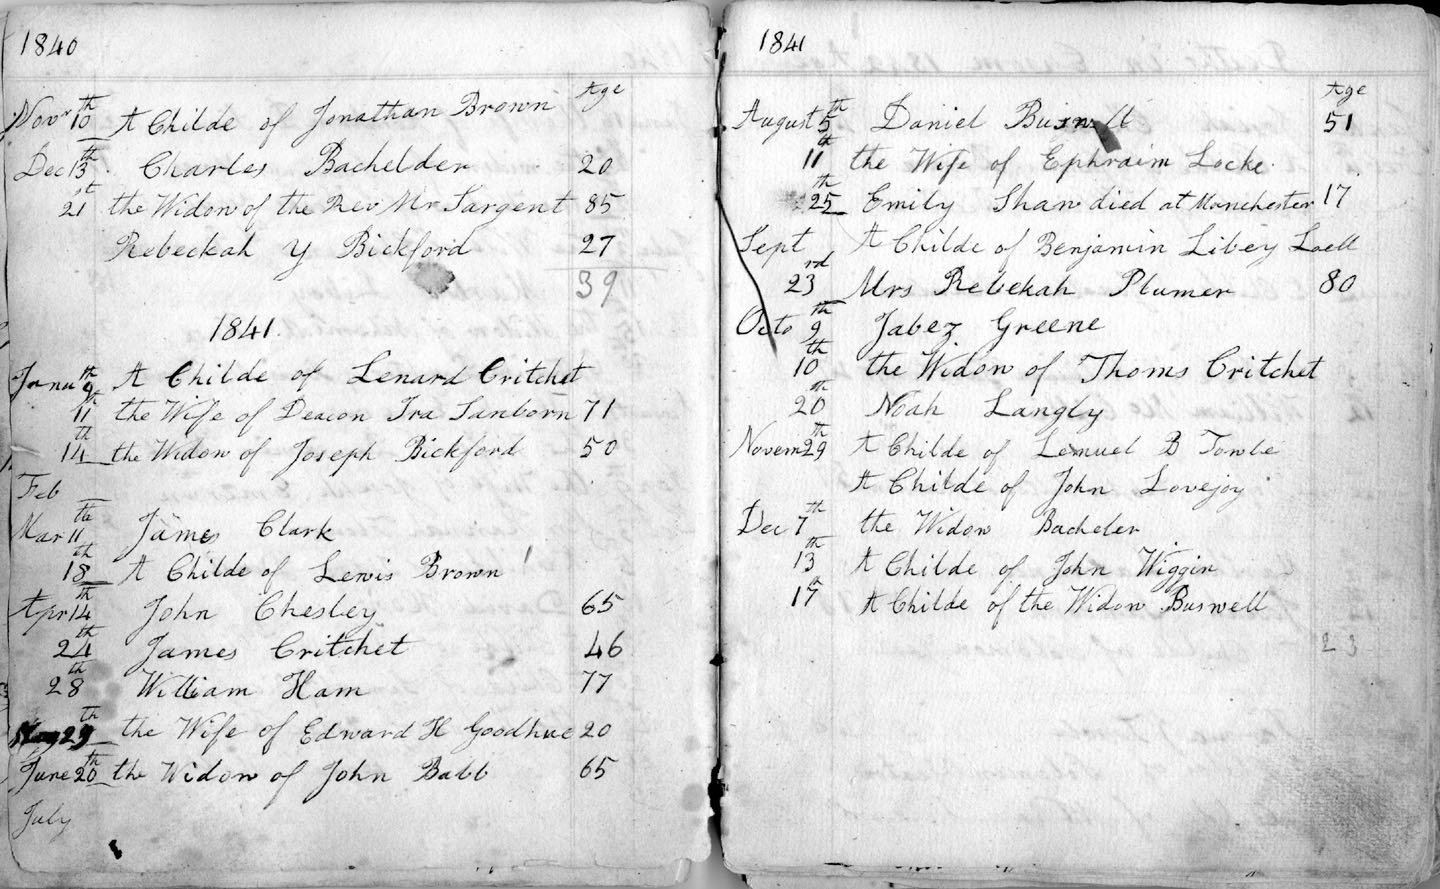 1840
Age
Novr 10th A Childe of Jonathan Brown
Dec 13th Charles Bachelder 20
21st the Widow of the Rev Mr Sargent 85
Rebeckah Y Bickford 27
39
1841
Janu 9th A Childe of Lenard Critchet
11th the Wife of Deacon Ira Sanborn 71
14th the Widow of Joseph Bickford 50
Feb
Mar 11th James Clark
18th A Childe of Lewis Brown
Apr 14th John Chesley 65
24th James Critchet 46
28th William Ham 77
May 29th the Wife of Edward H Goodhue 20
June 20th the Widow of John Babb 65
July
1841
Age
August 5th Daniel 51
11th the Wife of Ephraim Locke
25th Emily Shaw died at Manchester 17
Sept A Childe of Benjamin Libey Loell
23rd Mrs Rebekah Plumer 80
Octo 9th Jabez Greene
10th the Widow of Thoms Critchet
20th Noah Langly
Novem 29th A Childe of Lemuel B Towle
A Childe of John Lovejoy
Dec 7th the Widow Bacheler
13th A Childe of John Wiggin
17th A Childe of the Widow Buswell
23